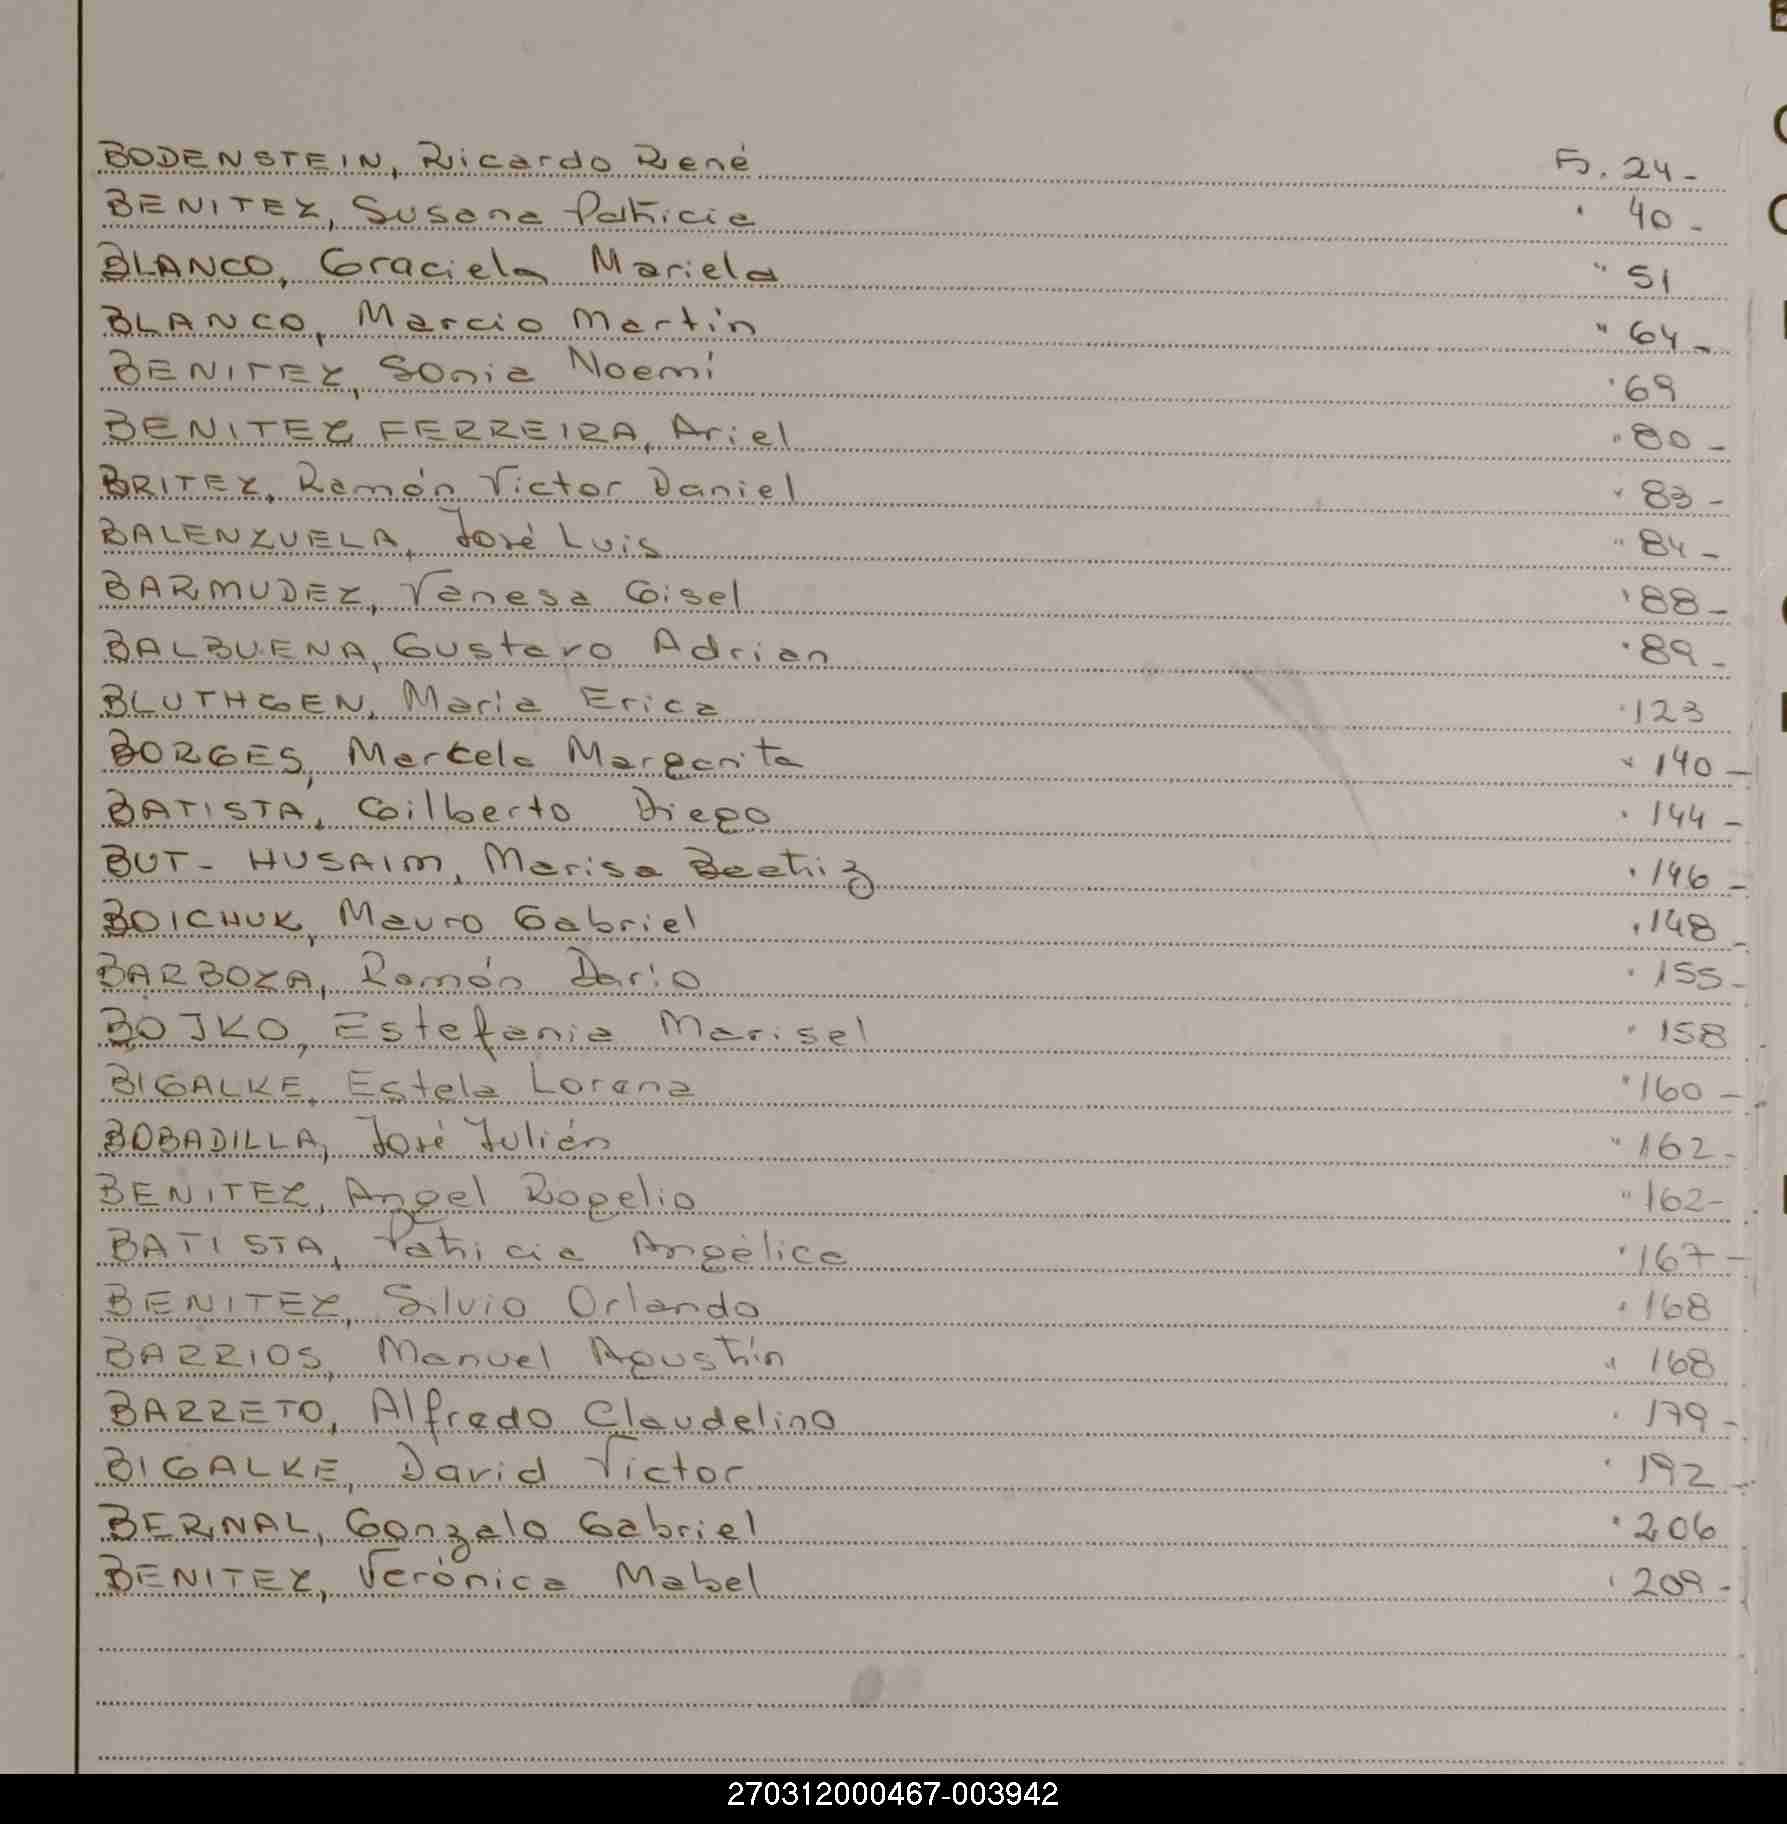 BODENSTEIN, Ricardo René Fs. 24-
BENITEZ, Susana Patricia " 40-
BLANCO, Graciela Mariela " 51
BLANCO, Marcio Martín " 64-
BENITEZ, Sonia Noemí " 69
BENITEZ FERREIRA, Ariel " 80-
BRITEZ, Ramón Victor Daniel " 83-
BALENZUELA, José Luis " 84-
BARMUDEZ, Vanesa Gisel " 88-
BALBUENA, Gustavo Adrian " 89-
BLUTHGEN, Maria Erica " 123
BORGES, Marcela Margarita " 140-
BATISTA, Gilberto Diego " 144-
BUT-HUSAIM, Marisa Beatriz " 146-
BOICHUK, Mauro Gabriel " 148-
BARBOZA, Ramón Dario " 155-
BOJKO, Estefania Marisel " 158
BIGALKE, Estela Lorena " 160-
BOBADILLA, José Julián " 162-
BENITEZ, Angel Rogelio " 162-
BATISTA, Patricia Angélica " 167-
BENITEZ, Silvio Orlando " 168
BARRIOS, Manuel Agustín " 168
BARRETO, Alfredo Claudelino " 179-
BIGALKE, David Victor " 192-
BERNAL, Gonzalo Gabriel " 206
BENITEZ, Verónica Mabel " 209-
270312000467-003942